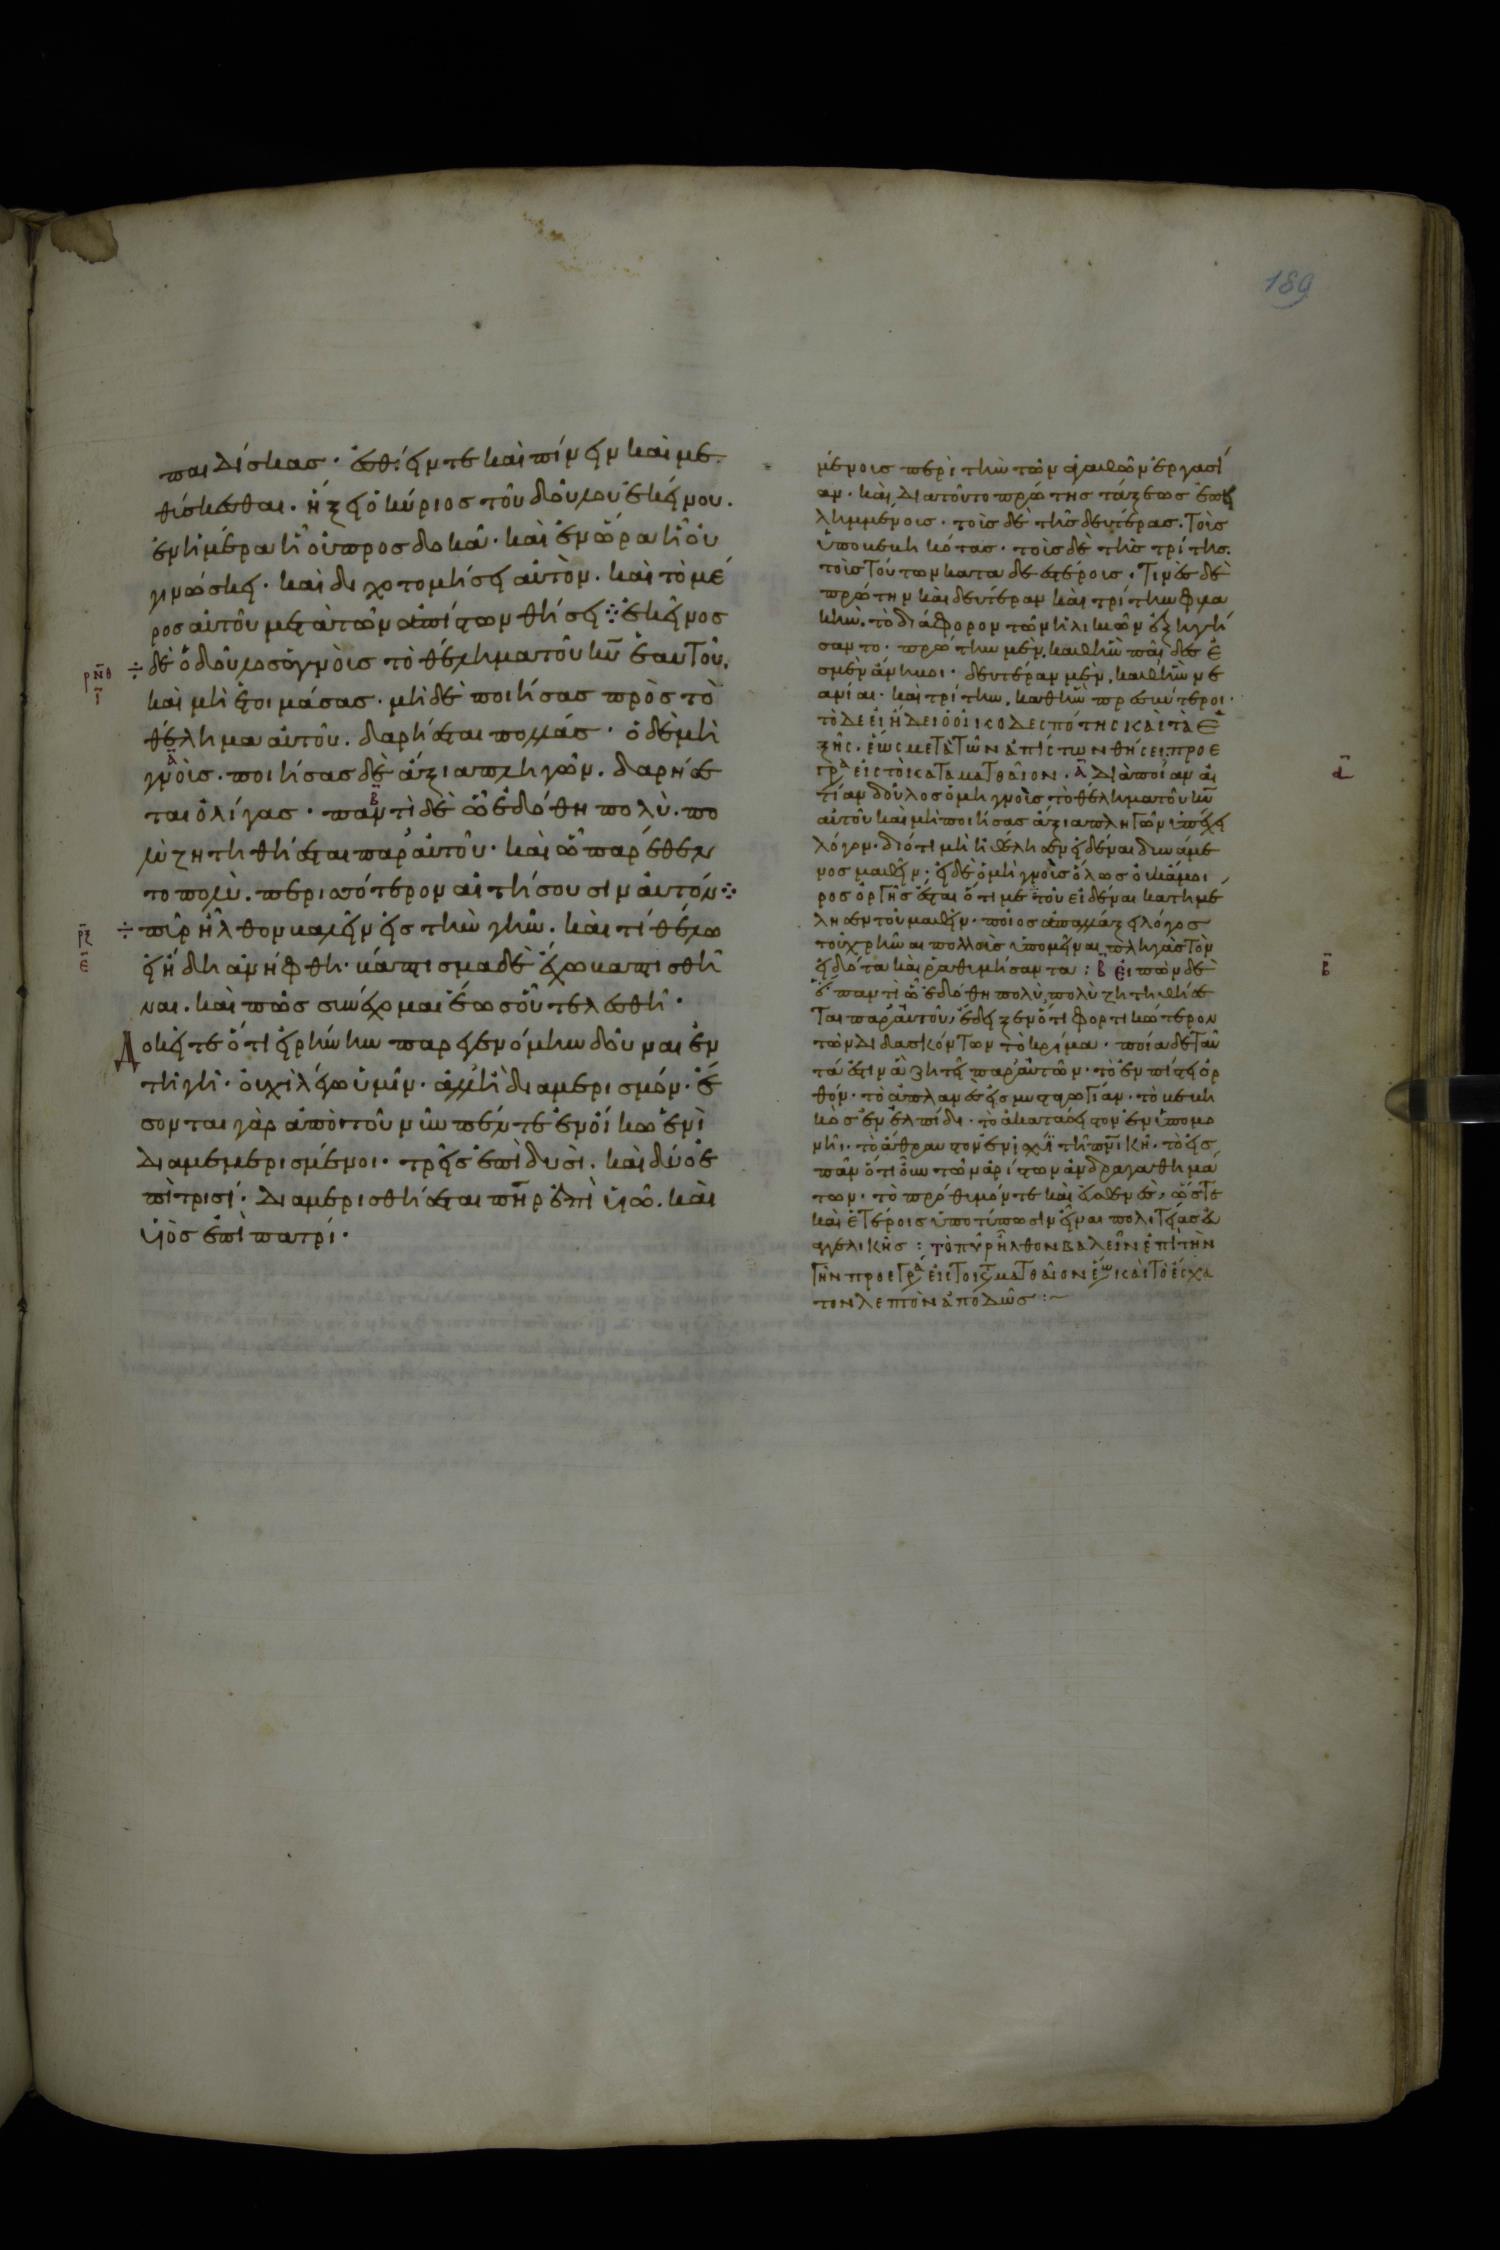 189
παιδίσκας · ἐσθίειν τε καὶ πίνειν καὶ με
θύσκεσθαι · ἥξει ὁ κύριος τοῦ δούλου ἐκείνου .
ἐν ἡμέρα ἧ οὐ προσδοκᾶ · καὶ ἐν ὥρα ἧ οὐ
γινώσκει · καὶ διχοτομήσει αὐτὸν . καὶ τὸ μέ
ρος αὐτοῦ μετὰ τῶν ἀπίστων θήσει ⁘ ἐκεῖνος
ρνθ ÷ δὲ ὁ δοῦλος ὁ γνοὺς τὸ θέλημα τοῦ κυ ἑαυτοῦ .
ι καὶ μὴ ἑτοιμάσας · μηδὲ ποιήσας πρὸς τὸ
θέλημα αὐτοῦ . δαρήσεται πολλάς · ὁ δὲ μὴ
α γνοὺς · ποιήσας δὲ ἄξια πληγῶν . δαρήσε
ται ὀλίγας · β παντὶ δὲ ὧ ἐδόθη πολὺ . πο
λὺ ζητηθήσεται παρ αὐτοῦ · καὶ ὧ παρέθεν
το πολὺ . περισσότερον αἰτήσουσιν αὐτόν ⁘
ρξ ÷ πῦρ ἦλθον βαλεῖν εἰς τὴν γῆν . καὶ τί θέλω
ε εἰ ἤδη ἀνήφθη · βάπτισμα δὲ ἔχω βαπτισθῆ
ναι . καὶ πῶς συνέχομαι ἕως οὗ τελεσθῆ ·
Δοκεῖτε ὅτι εἰρήνην παρεγενόμην δοῦναι ἐν
τῆ γῆ · οὐχὶ λέγω ὑμῖν · ἀλλ ἢ διαμερισμόν · ἔ
σονται γὰρ ἀπὸ τοῦ νῦν πέντε ἐν οἴκω ἑνὶ
διαμεμερισμένοι · τρεῖς ἐπὶ δυσὶ . καὶ δύο ἐ
πὶ τρισί · διαμερισθήσεται πηρ ἐπὶ υἱῶ . καὶ
υἱὸς ἐπὶ πατρί ·
μένοις περὶ τὴν τῶν ἀγαθῶν ἐργασί
αν · καὶ διὰ τοῦτο πρώτης τάξεως
λημμένοις · τοῖς δὲ τῆς δευτέρας . τοῖς
ὑποβεβηκότας · τοῖς δὲ τῆς τρίτης .
τοῖς τούτων καταδεεστέροις · Τινὲς δὲ
πρώτην καὶ δευτέραν καὶ τρίτην φυλα
κὴν . τὸ διάφορον τῶν ἡλικιῶν ἐξηγή
σαντο · πρώτην μὲν , καθ ἣν παῖδες ἐ
σμὲν ἄνηβοι · δευτέραν μὲν , καθ ἣν νε
ανίαι · καὶ τρίτην , καθ ἣν πρεσβύτεροι ·
τὸ δὲ εἰ ἤδει ὁ οἰκοδεσπότης καὶ τὰ ἑ
ξῆς . ἕως μετὰ τῶν ἀπίστων θήσει , προε
γρα εἰς τὸ κατὰ ματθαῖον . α Διὰ ποίαν αἰ
α
τίαν δοῦλος ὁ μὴ γνοὺς τὸ θέλημα τοῦ κυ
αὐτοῦ καὶ μὴ ποιήσας ἄξια πληγῶν ὑπέχει
λόγον · διότι μὴ ἠθέλησεν εἰδέναι δυνάμε
νος μαθεῖν · εἰ δὲ ὁ μὴ γνοὺς ὅλως ὁ
ρος ὀργῆς ἔσται ὅτι με τοῦ εἰδέναι κατημέ
λησεν τοῦ μαθεῖν · ποῖος ἀπαλλάξει λόγος
τοῦ χρῆναι πολλαῖς ὑπομεῖναι πληγὰς τὸν
εἰδότα καὶ ῥαθυμήσαντα : β εἰπὼν δὲ
β
ὅ παντὶ ὧ ἐδόθη πολὺ , πολὺ ζητηθήσε
ται παρ αὐτοῦ , ἔδειξεν ὅτι φορτικώτερον
τῶν διδασκόντων τὸ κρίμα · ποία δὲ ταῦ
τά ἐστιν ἃ ζητεῖ παρ αὐτῶν · τὸ ἐν πίστει ὀρ
θόν · τὸ ἀπλανὲς εἰς μυσταγωγίαν · τὸ βεβη
κὸς ἐν ἐλπίδι · τὸ ἀκατάσειστον ἐν ὑπομο
νῆ · τὸ ἄθραυστον ἐν ἰσχύϊ τῆ πνικῆ . τὸ εἰς
πᾶν ὁτιοῦν τῶν ἀρίστων ἀνδραγαθημά
των · τὸ πρόθυμόν τε καὶ εὐσθενὲς , ὥστε
καὶ ἑτέροις ὑποτύπωσιν εἶναι πολιτείας εὐ
αγγελικῆς : τὸ πῦρ ἦλθον βαλεῖν ἐπὶ τὴν
γῆν προεγρα εἰς τοὺς ματθαῖον ἕως καὶ τὸ ἔσχα
τον λεπτὸν ἀποδῶς : ~